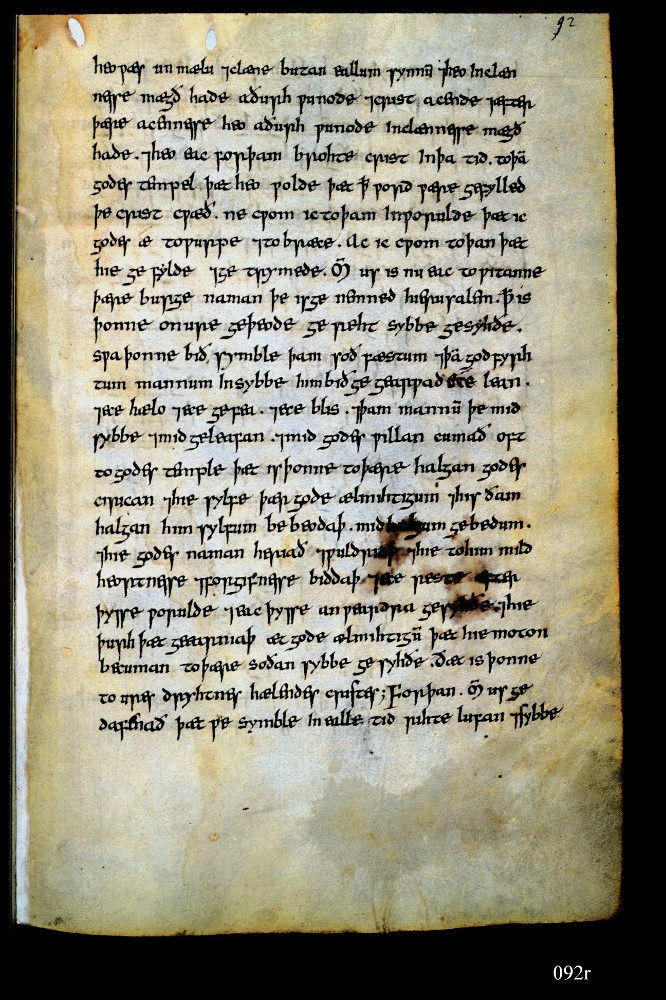 92
heo wæs unmælu ⁊ clæne butan eallum synnū ⁊ heo In clæn
nesse mægð hade aðurh wunode ⁊ crist acende ⁊ æfter
þære acennesse heo aðurh wunode In clænnesse mægð
hade. ⁊ heo eac forþam brohte crist In þa tid. to þā
godes tempel. þæt heo wolde þæt ꝥ word wære gefylled
þe crist cwæð. ne cwom ic to þam In worulde þæt ic
godes æ towurpe ⁊ tobræce. Ac ic cwom to þan þæt
hie ge fylde ⁊ ge trymede. M̄ us is nu eac to witanne
þære burge naman þe is ge nemned hierusalem. ꝥ is
þonne on ure geþeode ge reht sybbe gesyhðe.
swa þonne bið symble þam soð fæstum ⁊ þā god fyrh
tum mannum In sybbe him bið ge gearwad ece lean.
⁊ ece hælo ⁊ ece gefea. ⁊ ece blis. ⁊ þam mannū þe mid
sybbe ⁊ mid geleafan. ⁊ mid godes willan cumað oft
to godes temple þæt is þonne to þære halgan godes
cirican ⁊ hie sylfe þær gode ælmihtigum ⁊ his ðam
halgan him sylfum be beodaþ. mid halgum gebedum.
⁊ hie godes naman heriað ⁊ wuldriaþ ⁊ hie to him mild
heortnesse ⁊ forgifnesse biddaþ ⁊ ece reste æfter
þysse worulde ⁊ eac þysse andweardra gesyhðe. ⁊ hie
þurh þæt geearniaþ æt gode ælmihtigū þæt hie moton
becuman to þære soðan sybbe gesyhðe. ðæt is þonne
to ures dryhtnes hælendes cristes; Forþan. M̄ us ge
dafenað þæt we symble In ealle tid rihte lufan ⁊ sybbe
092r